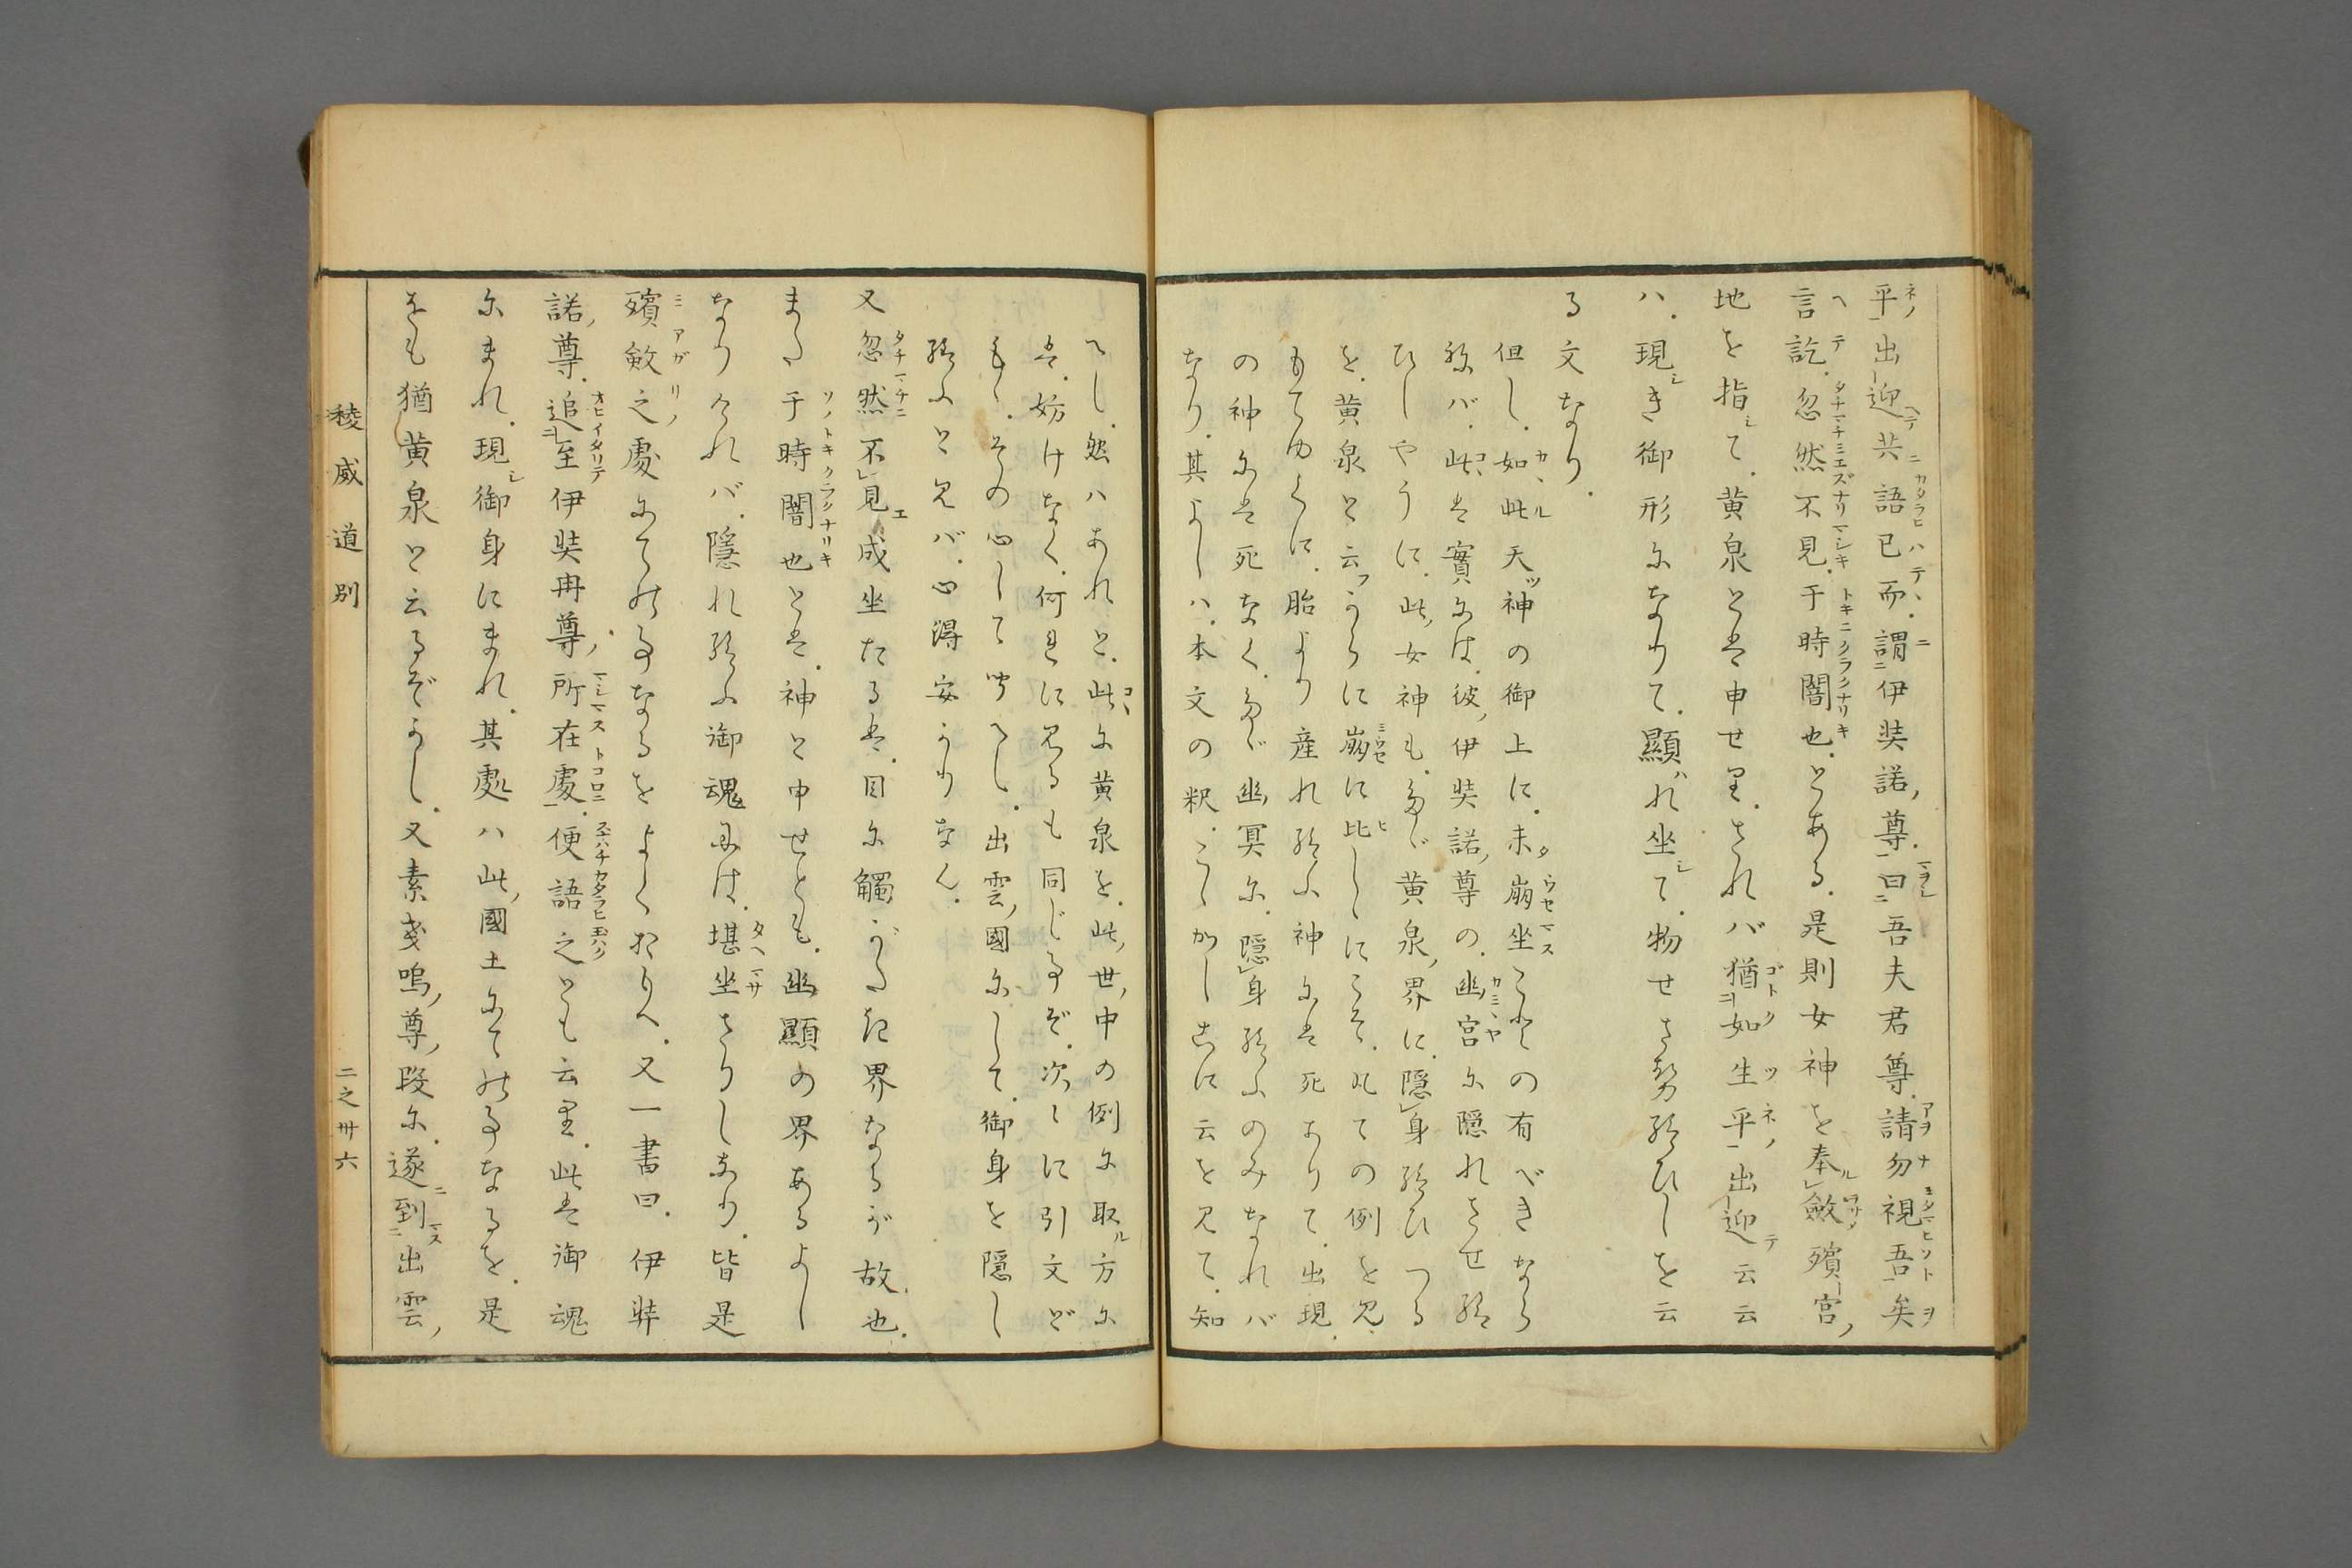 平出迎共語已而謂伊奘諾尊曰吾夫君尊請勿視吾矣
言訖忽然不見于時闇也とある是則女神を奉斂殯宮
地を指て黄泉とは申せりされバ猶如生平出迎云云
ハ現き御形になりて顯れ坐て物せさせ給ひしを云
る文なり
但し如此天神の御上に未崩坐ことの有べきなら
ねバ此は實には彼伊奘諾尊の幽宮に隠れさせ給
ひしやうに此女神もたゞ黄泉界に隱身給ひつる
を黄泉と云からに崩に比しにこそ凡ての例を見
もてゆくに胎より産れ給ふ神には死ありて出現
の神には死なくたゞ幽冥に隱身給ふのみなれバ
なり其よしハ本文の釈こゝかしこに云を見て知
べし然ハあれど此に黄泉を此世中の例に取方に
は妨けなく何れに見るも同じ事ぞ次々に引文ど
もゝその心して皆べし出雲國にして御身を隱し
給ふと見バ心得安かりなん
又忽然不見成坐たるは目に觸がたき界なるが故也
また于時闇也とは神と申せども幽顯の界あるよし
なりけれバ隱れ給ふ御魂には堪坐さりしなり皆是
殯斂之處にての事なるをよくおもへ又一書曰伊弉
諾尊追至伊奘冉尊所在處便語之とも云り此は御魂
にまれ現御身にまれ其處ハ此國土にての事なるを是
をも猶黄泉と云るぞかし又素戔嗚尊段に遂到出雲
稜威道別
二之卅六